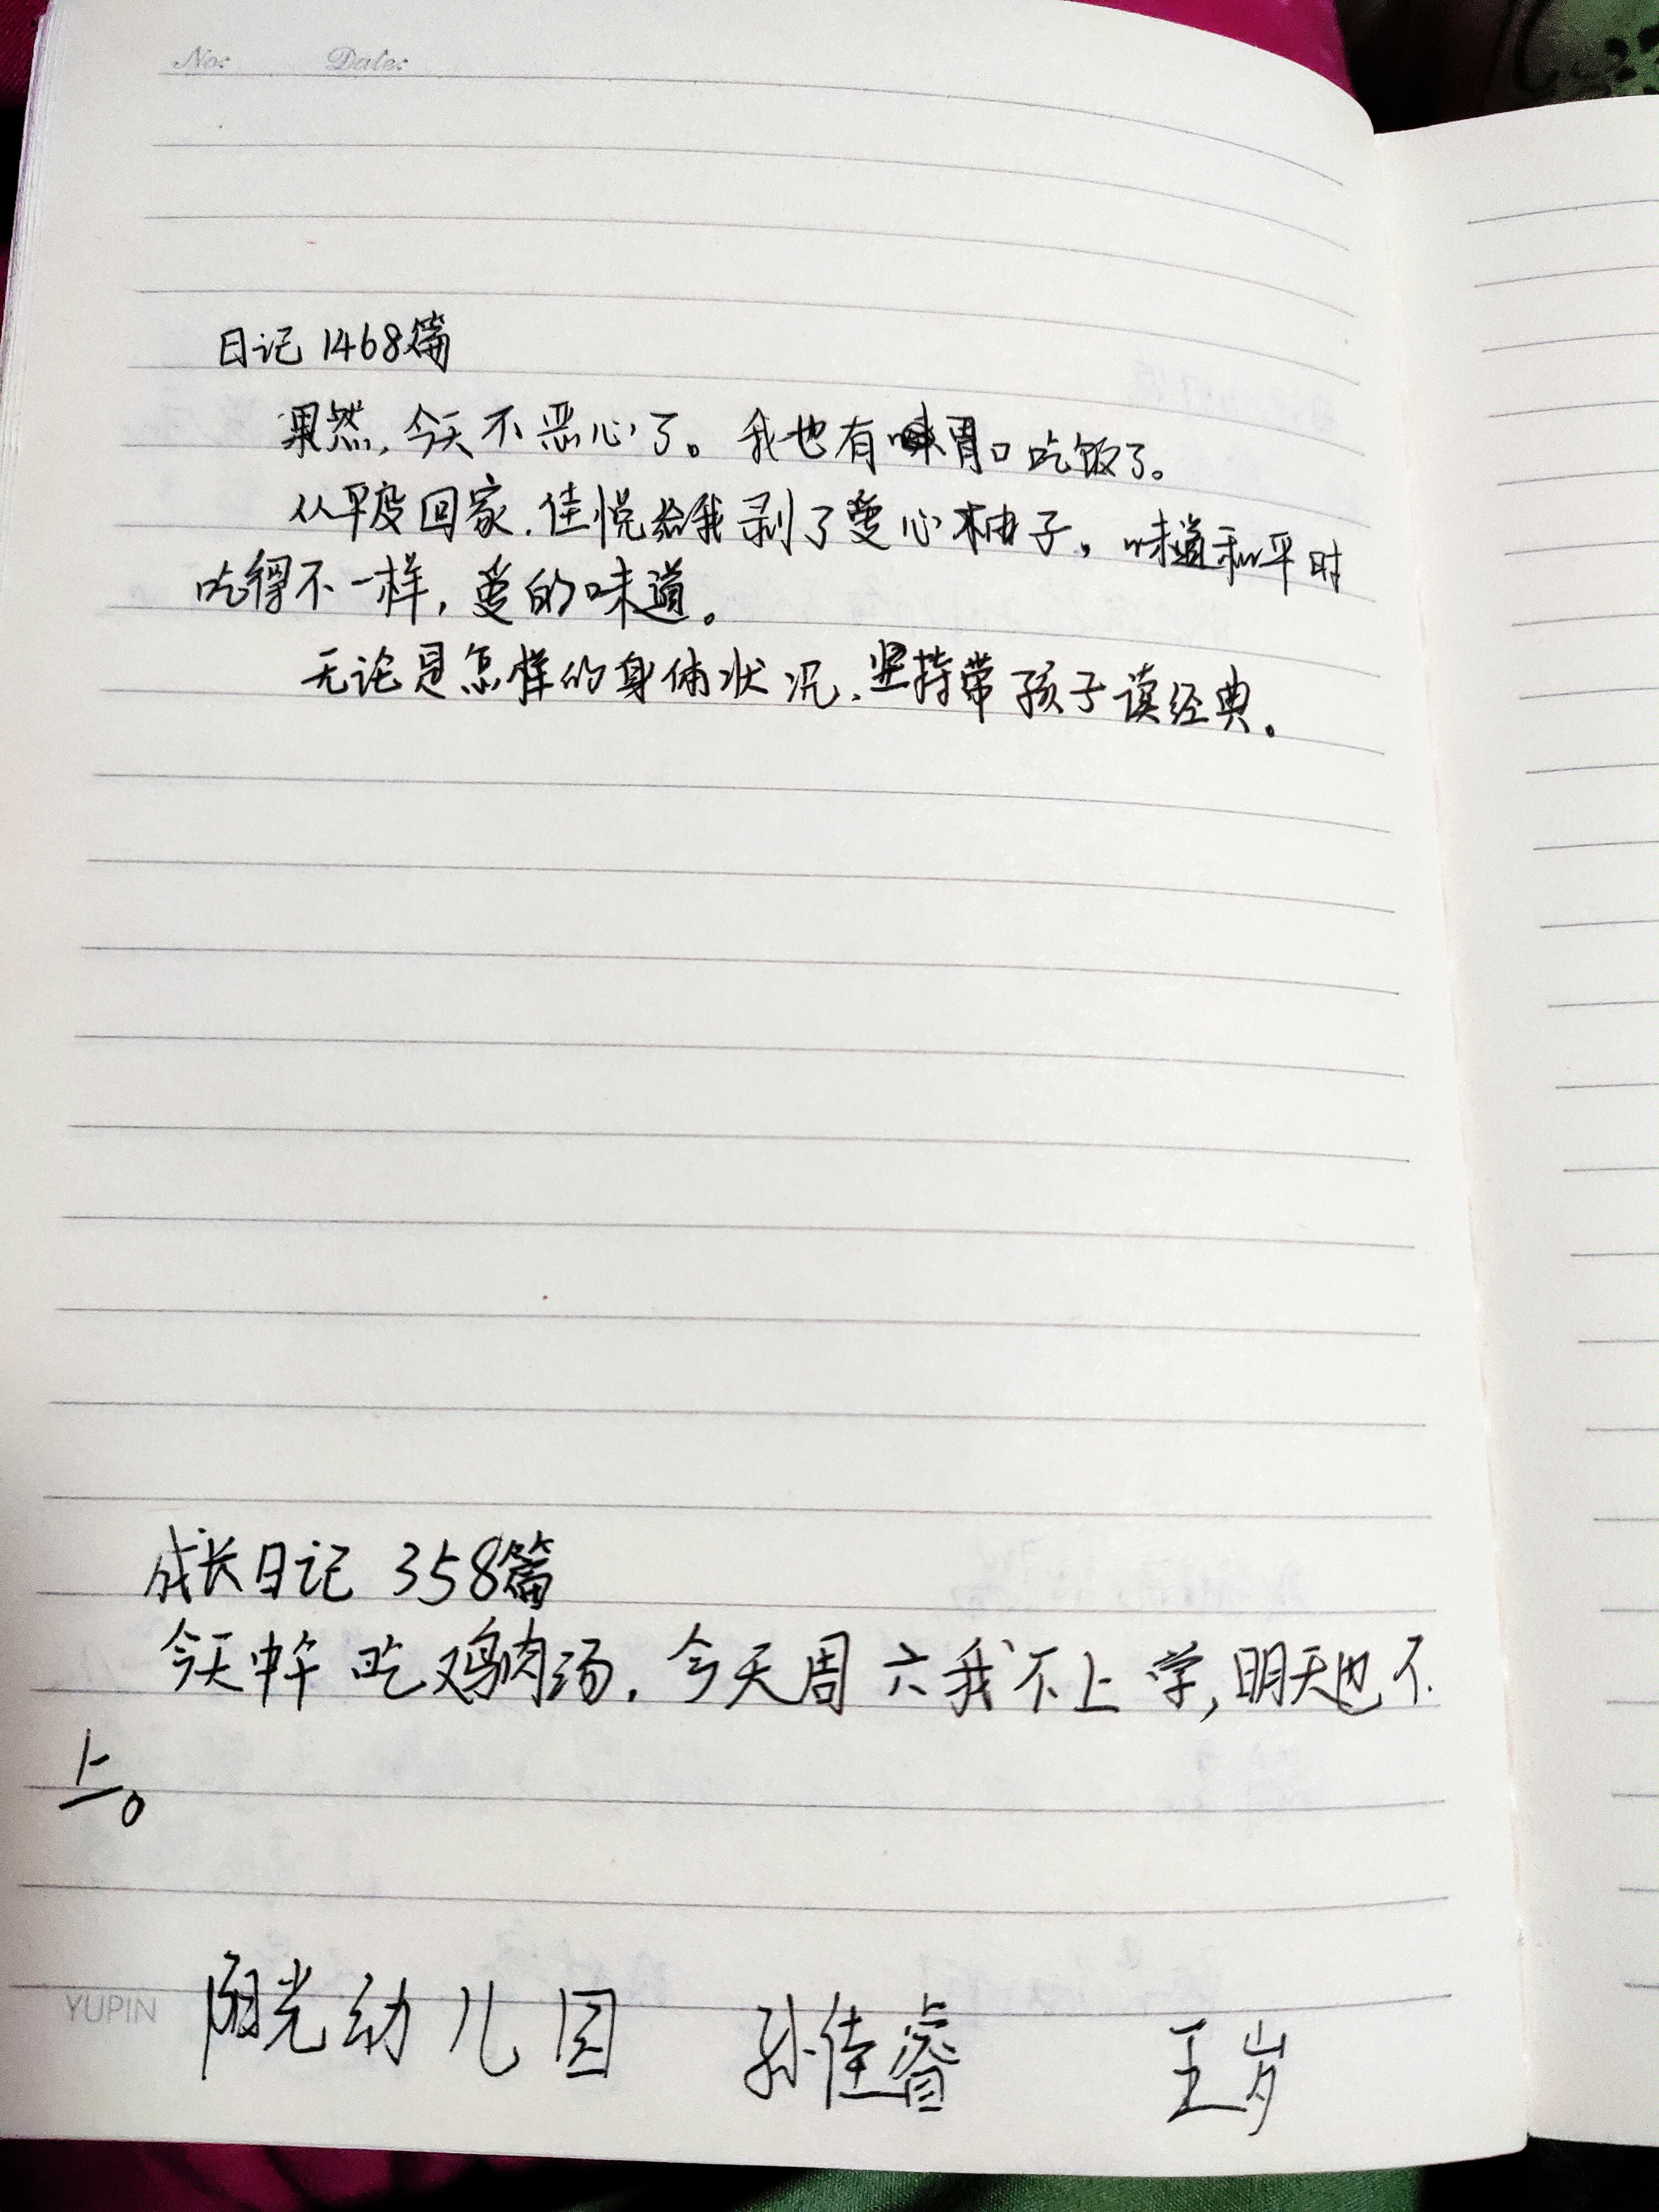 No: Date:
日记 1468篇
果然,今天不恶心了。我也有胃口吃饭了。
从平度回家,佳悦给我剥了爱心柚子,味道和平时
吃得不一样,爱的味道。
无论是怎样的身体状况,坚持带孩子读经典。
成长日记 358篇
今天中午吃鸡肉汤.今天周六我不上学,明天也不
上。
YUPIN 阳光幼儿园 孙佳睿 五岁